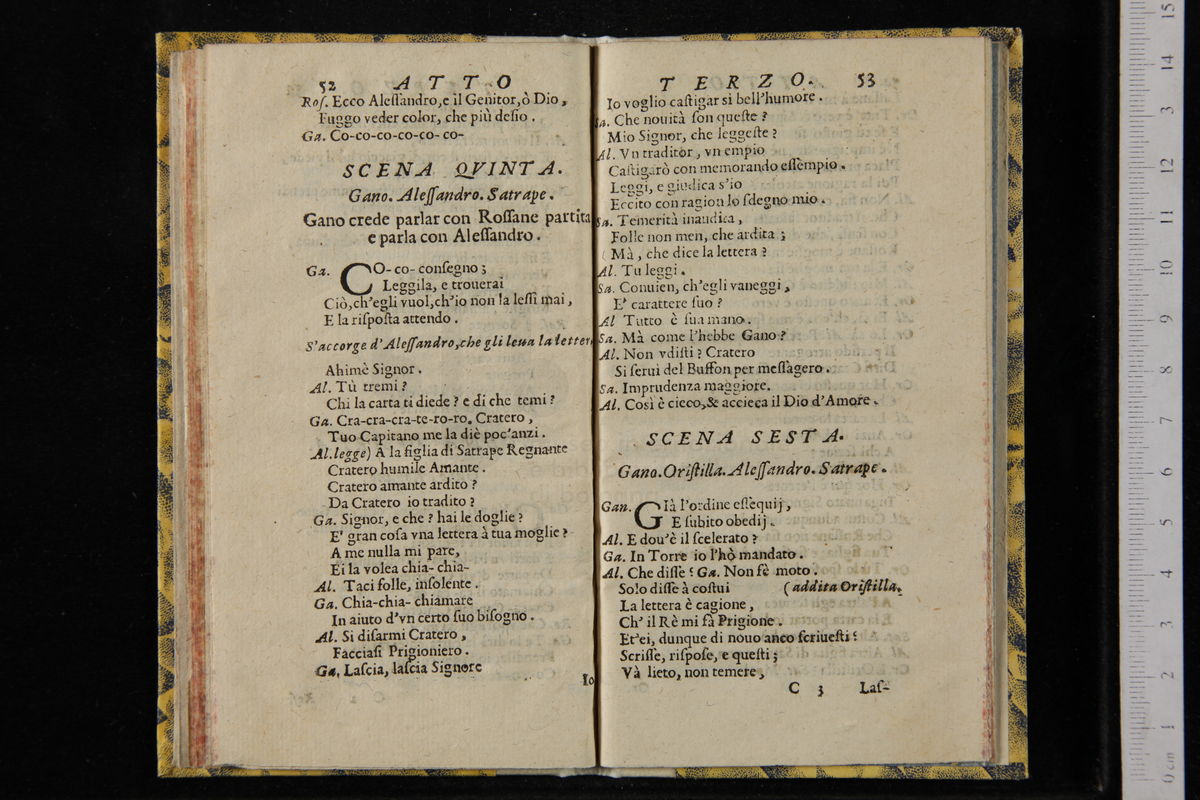 52 ATTO
Roſ. Ecco Aleſſandro, e il Genitor, ò Dio,
Fuggo veder color, che più deſio.
Ga. Co-co-co-co-co-co-
SCENA QVINTA.
Gano. Aleſſandro. Satrape.
Gano crede parlar con Roſſane partita
e parla con Aleſſandro.
Ga. CO-co-conſegno;
Leggila, e trouerai
Ciò, ch'egli vuol, ch'io non la leſſi mai,
E la riſpoſta attendo.
S'accorge d'Aleſſandro, che gli leua la letter
Ahimè Signor.
Al. Tù tremi?
Chi la carta ti diede? e di che temi?
Ga. Cra-cra-cra-te-ro-ro. Cratero,
Tuo Capitano me la diè poc'anzi.
Al. legge) A la figlia di Satrape Regnante
Cratero humile Amante.
Cratero amante ardito?
Da Cratero io tradito?
Ga. Signor, e che? hai le doglie?
E' gran coſa vna lettera à tua moglie?
A me nulla mi pare,
Ei la volea chia-chia-
Al. Taci folle, inſolente.
Ga. Chia-chia-chiamare
In aiuto d'vn certo ſuo biſogno.
Al. Si diſarmi Cratero,
Facciaſi Prigioniero.
Ga. Laſcia, laſcia Signore
Io
TERZO. 53
Io voglio caſtigar sì bell'humore.
Sa. Che nouità ſon queſte?
Mio Signor, che leggeſte?
Al. Vn traditor, vn empio
Caſtigarò con memorando eſſempio.
Leggi, e giudica s'io
Eccito con ragion lo ſdegno mio.
Sa. Temerità inaudita,
Folle non men, che ardita;
Mà, che dice la lettera?
Al. Tu leggi.
Sa. Conuien, ch'egli vaneggi,
E' carattere ſuo?
Al Tutto è ſua mano.
Sa. Mà come l'hebbe Gano?
Al. Non vdiſti? Cratero
Si ſeruì del Buffon per meſſagero.
Sa. Imprudenza maggiore.
Al. Così è cieco, & accieca il Dio d'Amore.
SCENA SESTA.
Gano. Oriſtilla. Aleſſandro. Satrape.
Gan. GIà l'ordine eſſequij,
E ſubito obedij.
Al. E dou'è il ſcelerato?
Ga. In Torre io l'hò mandato.
Al. Che diſſe? Ga. Non fè moto.
Solo diſſe à coſtui (addita Oriſtilla.
La lettera è cagione,
Ch' il Rè mi fà Prigione.
Et'ei, dunque di nouo anco ſcriueſti?
Scriſſe, riſpoſe, e queſti;
Và lieto, non temere,
C 3 Laſ-